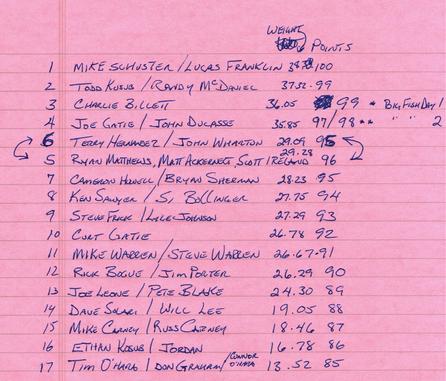 WEIGHT POINTS
1 MIKE SCHUSTER / LUCAS FRANKLIN 100
2 TODD KUSUS / RANDY McDANIEL 37.32 99
3 CHARLIE BILLETT 36.05 99 * BIG FISH DAY 1
4 JOE GATIE / JOHN DUCASSE 35.85 97/98 ** " " 2
6 TERRY HERNANDEZ / JOHN WHARTON 29.09 95
5 RYAN MATHEWS, MATT ACKERNECT, SCOTT IRELAND 29.28 96
7 CAMERON HOWELL / BRYAN SHERMAN 28.23 95
8 KEN SAWYER / S. BOLLINGER 27.75 94
9 STEVE FRICK / LYLE JOHNSON 27.29 93
10 CURT GATIE 26.78 92
11 MIKE WARREN / STEVE WARREN 26.67 91
12 RICK BOGUE / JIM PORTER 26.29 90
13 JOE LEONE / PETE BLAKE 24.30 89
14 DAVE / WILL LEE 19.05 88
15 MIKE CARNEY / RUSS CARNEY 18.46 87
16 ETHAN KUSUS / JORDAN 16.78 86
17 TIM O'HARA / DON GRAHAM / CONNOR O'HARA 13.52 85